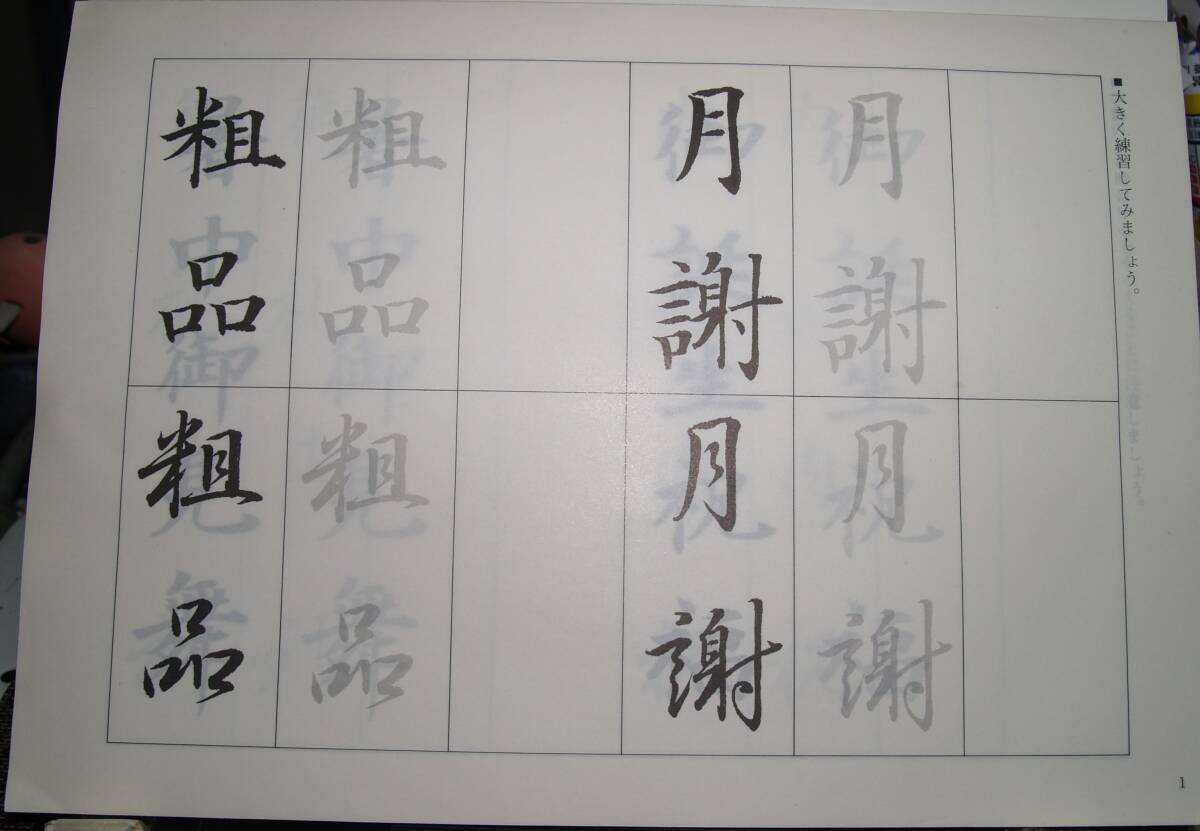 ■大きく練習してみましょう。
月謝
月謝
月謝
月謝
粗品
粗品
粗品
粗品
1